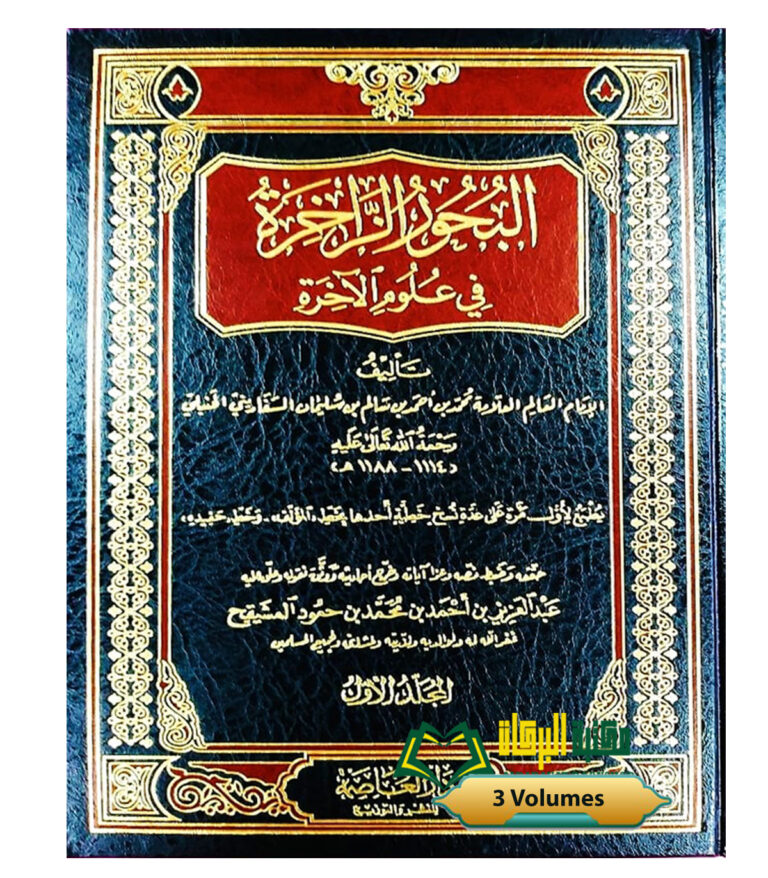 البُحُورُ الزَّاخِرَةُ
فِي عُلُومِ الآخِرَةِ
تَأليفُ
الإمام العالم العلامة محمد بن أحمد بن سالم بن سليمان السفاريني الحنبلي
رحمة الله تعالى عليه
(١١١٤ - ١١٨٨ هـ)
يطبع لأول مرة على عدة نسخ خطية أحدها بخط «المؤلف» - وخط حفيده،
حققه وضبط نصه وعزا آياته وخرج أحاديثه ووثق نقوله وعلق عليه
عبد العزيز بن أحمد بن محمد بن حمود المشيقح
غفر الله له ولوالديه ولذريته ولمشايخه ولجميع المسلمين
المجلد الأول
مكتبة البركة
دار العاصمة
للنشر والتوزيع
3 Volumes